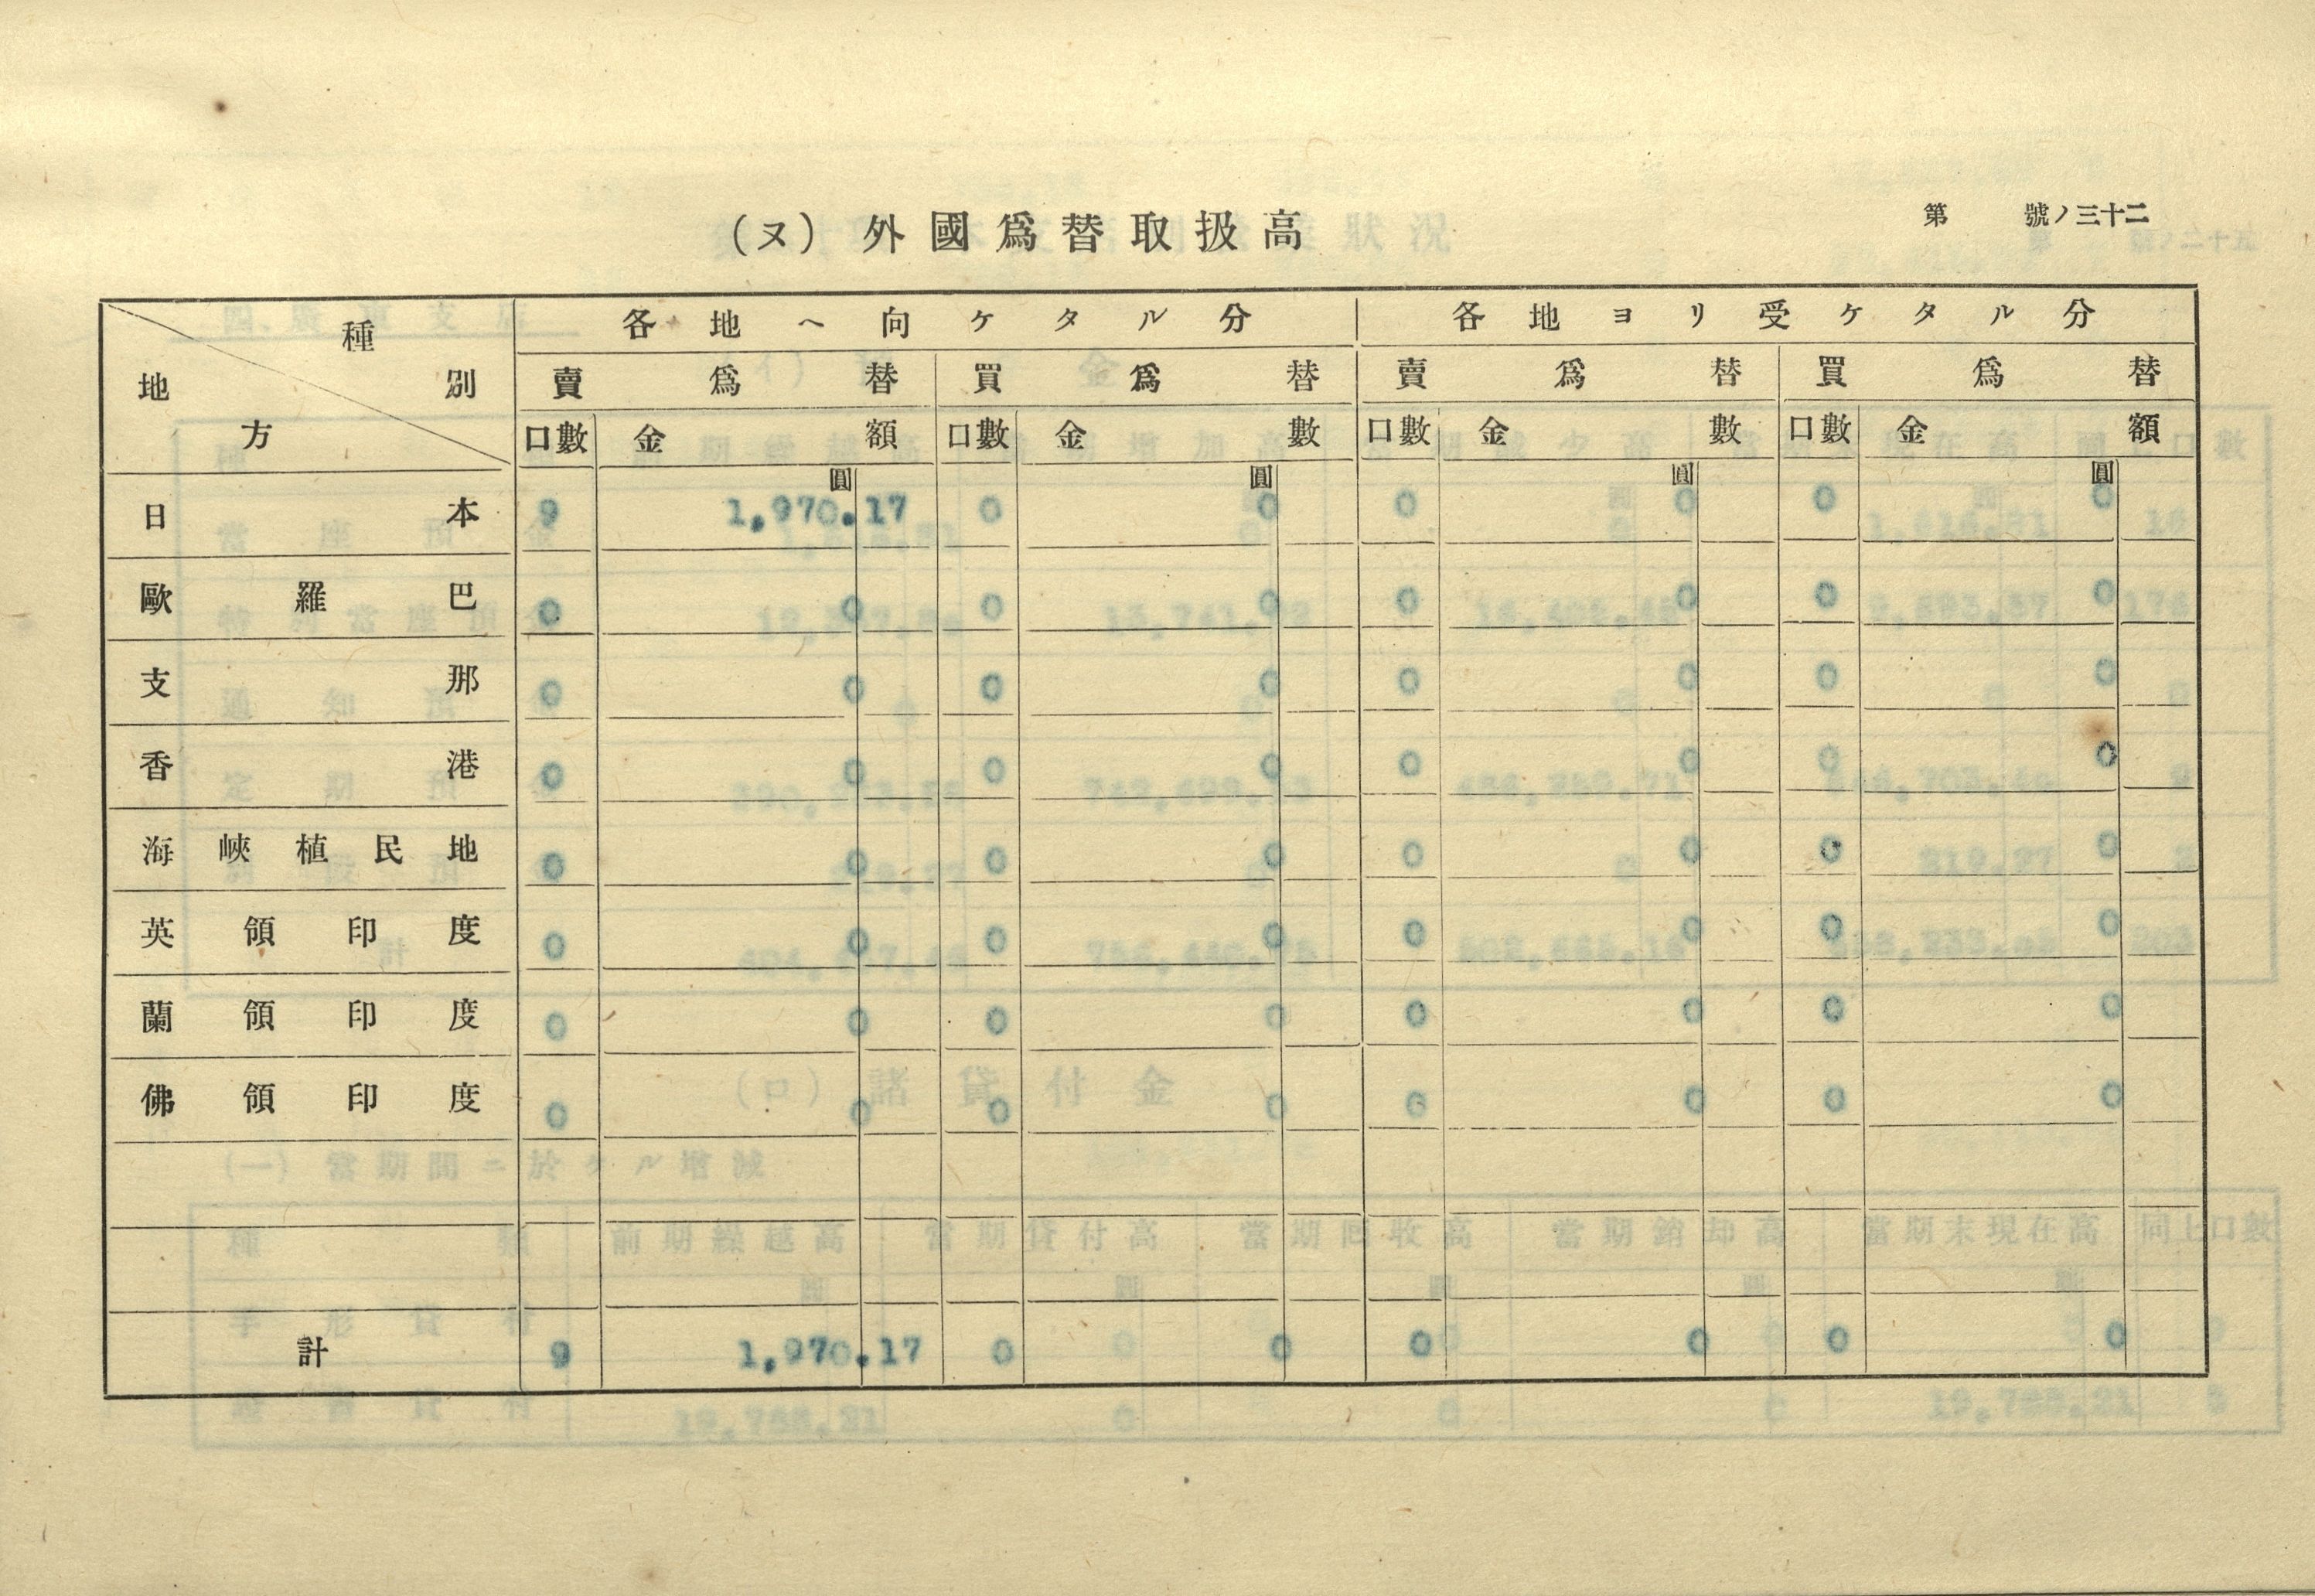 第 號ノ三十二
(ヌ) 外國爲替取扱高
種別 地方 各地ヘ向ケタル分 各地ヨリ受ケタル分
賣爲替 買爲替 賣爲替 買爲替
口數 金額 口數 金數 口數 金數 口數 金額
圓 圓 圓 圓
日本 9 1,970.17 0 0 0 0 0 0
歐羅巴 0 0 0 0 0 0 0 0
支那 0 0 0 0 0 0 0 0
香港 0 0 0 0 0 0 0 0
海峽植民地 0 0 0 0 0 0 0 0
英領印度 0 0 0 0 0 0 0 0
蘭領印度 0 0 0 0 0 0 0 0
佛領印度 0 0 0 0 0 0 0 0
計 9 1,970.17 0 0 0 0 0 0